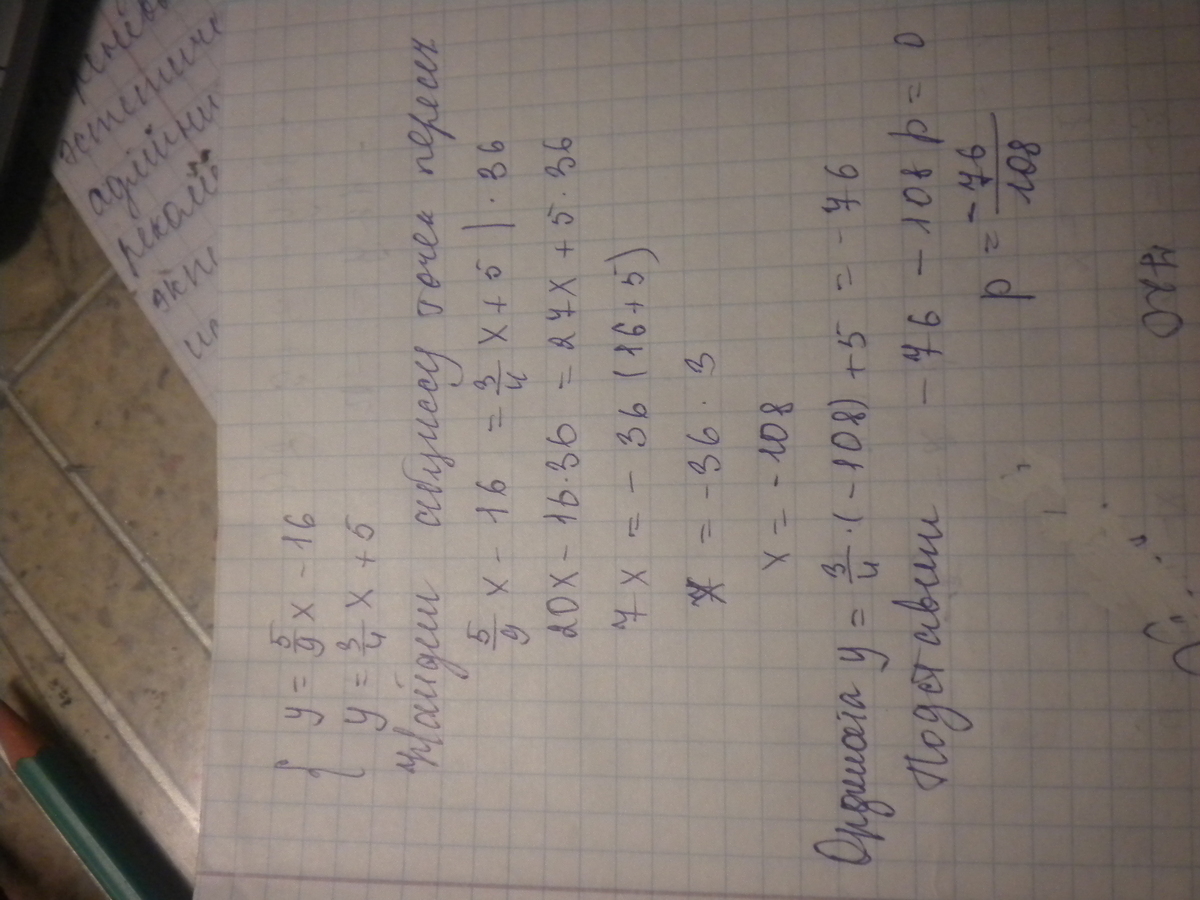 { y = 5/9 x - 16
y = 3/4 x + 5
Найдем абциссу точек пересеч
5/9 x - 16 = 3/4 x + 5 | · 36
20x - 16·36 = 27x + 5·36
7x = -36 (16+5)
x = -36 · 3
x = -108
Ордината y = 3/4 · (-108) + 5 = -76
Подставим -76 - 108 p = 0
p = -76/108
эстетиче